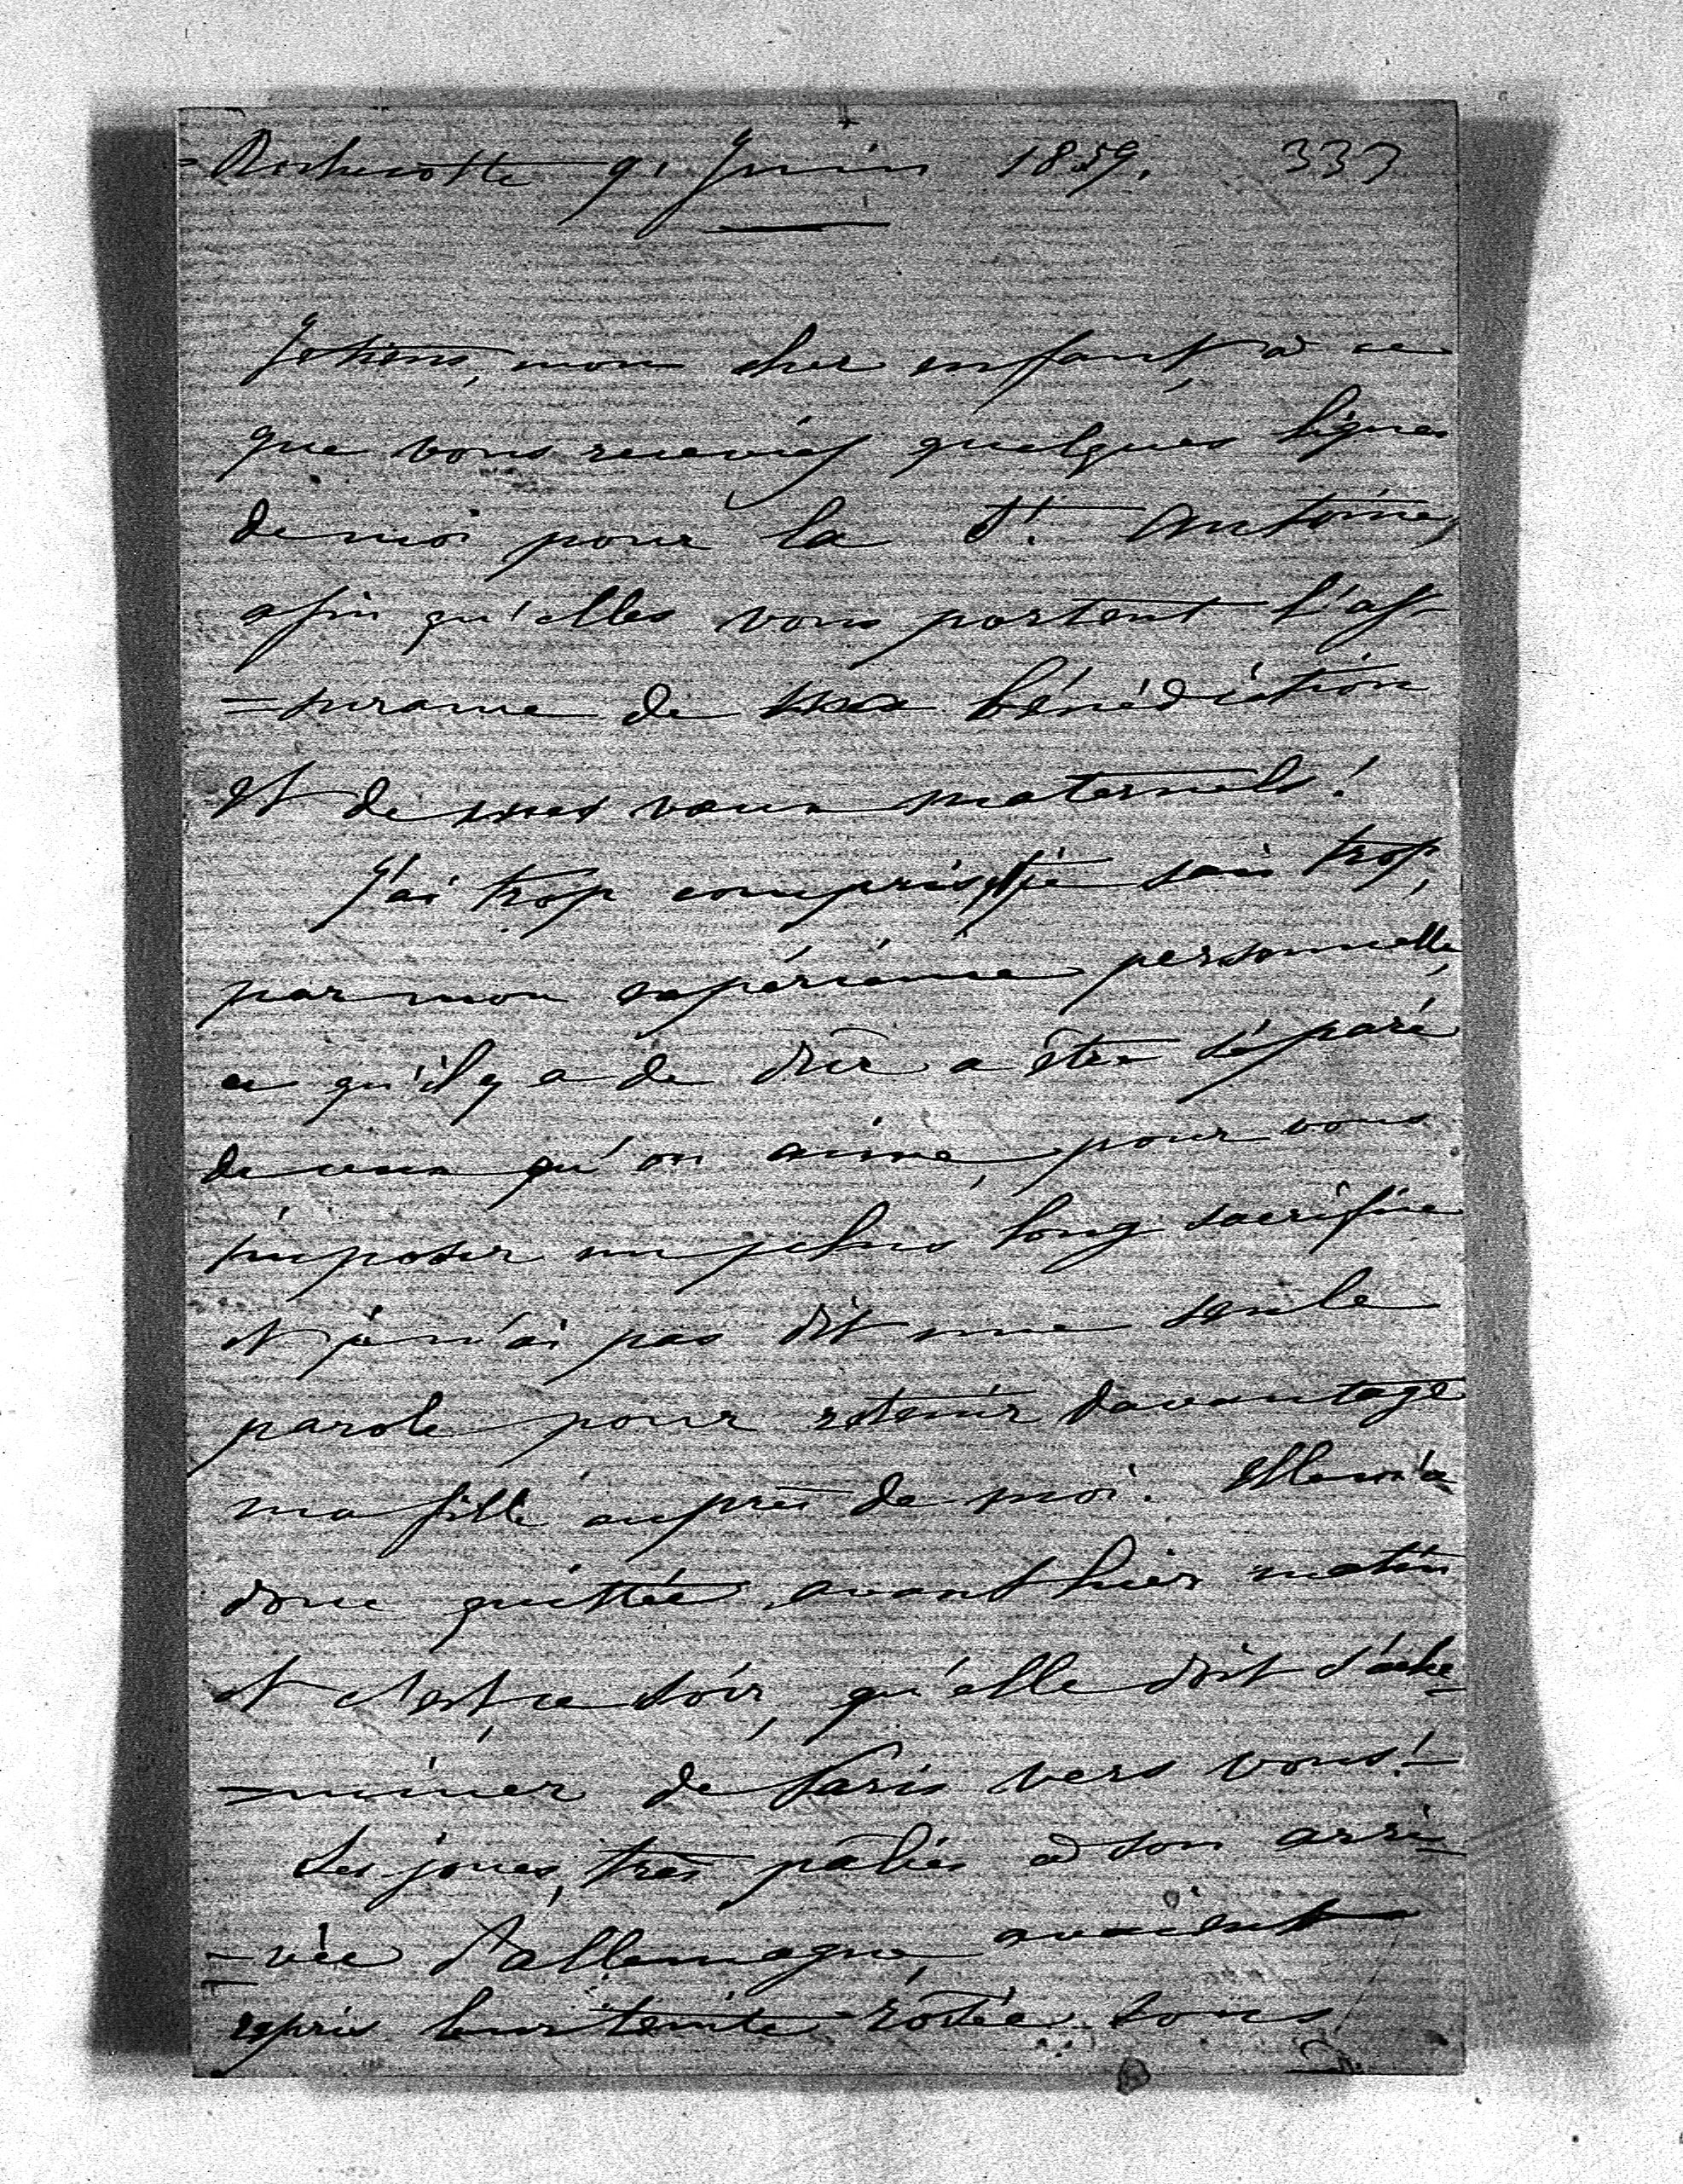 Rochecotte 9. Juin 1859. 337
Je tiens, mon cher enfant, à ce
que vous receviez quelques lignes
de moi pour la St. Antoine,
afin qu'elles vous portent l'as-
=surance de ma bénédiction
et de mes vœux maternels!
J'ai trop compris, je sais trop,
par mon expérience personnelle,
ce qu'il y a de dur a être séparé
de ceux qu'on aime, pour vous
imposer un plus long sacrifice
et je n'ai pas dit une seule
parole pour retenir davantage
ma fille auprès de moi. Elle m'a
donc quittée avant hier matin
et c'est ce soir, qu'elle doit s'ache-
=miner de Paris vers vous!
Ses joues, très pâlies à son arri-
=vée d'allemagne, avaient
repris leur teinte rosée sous